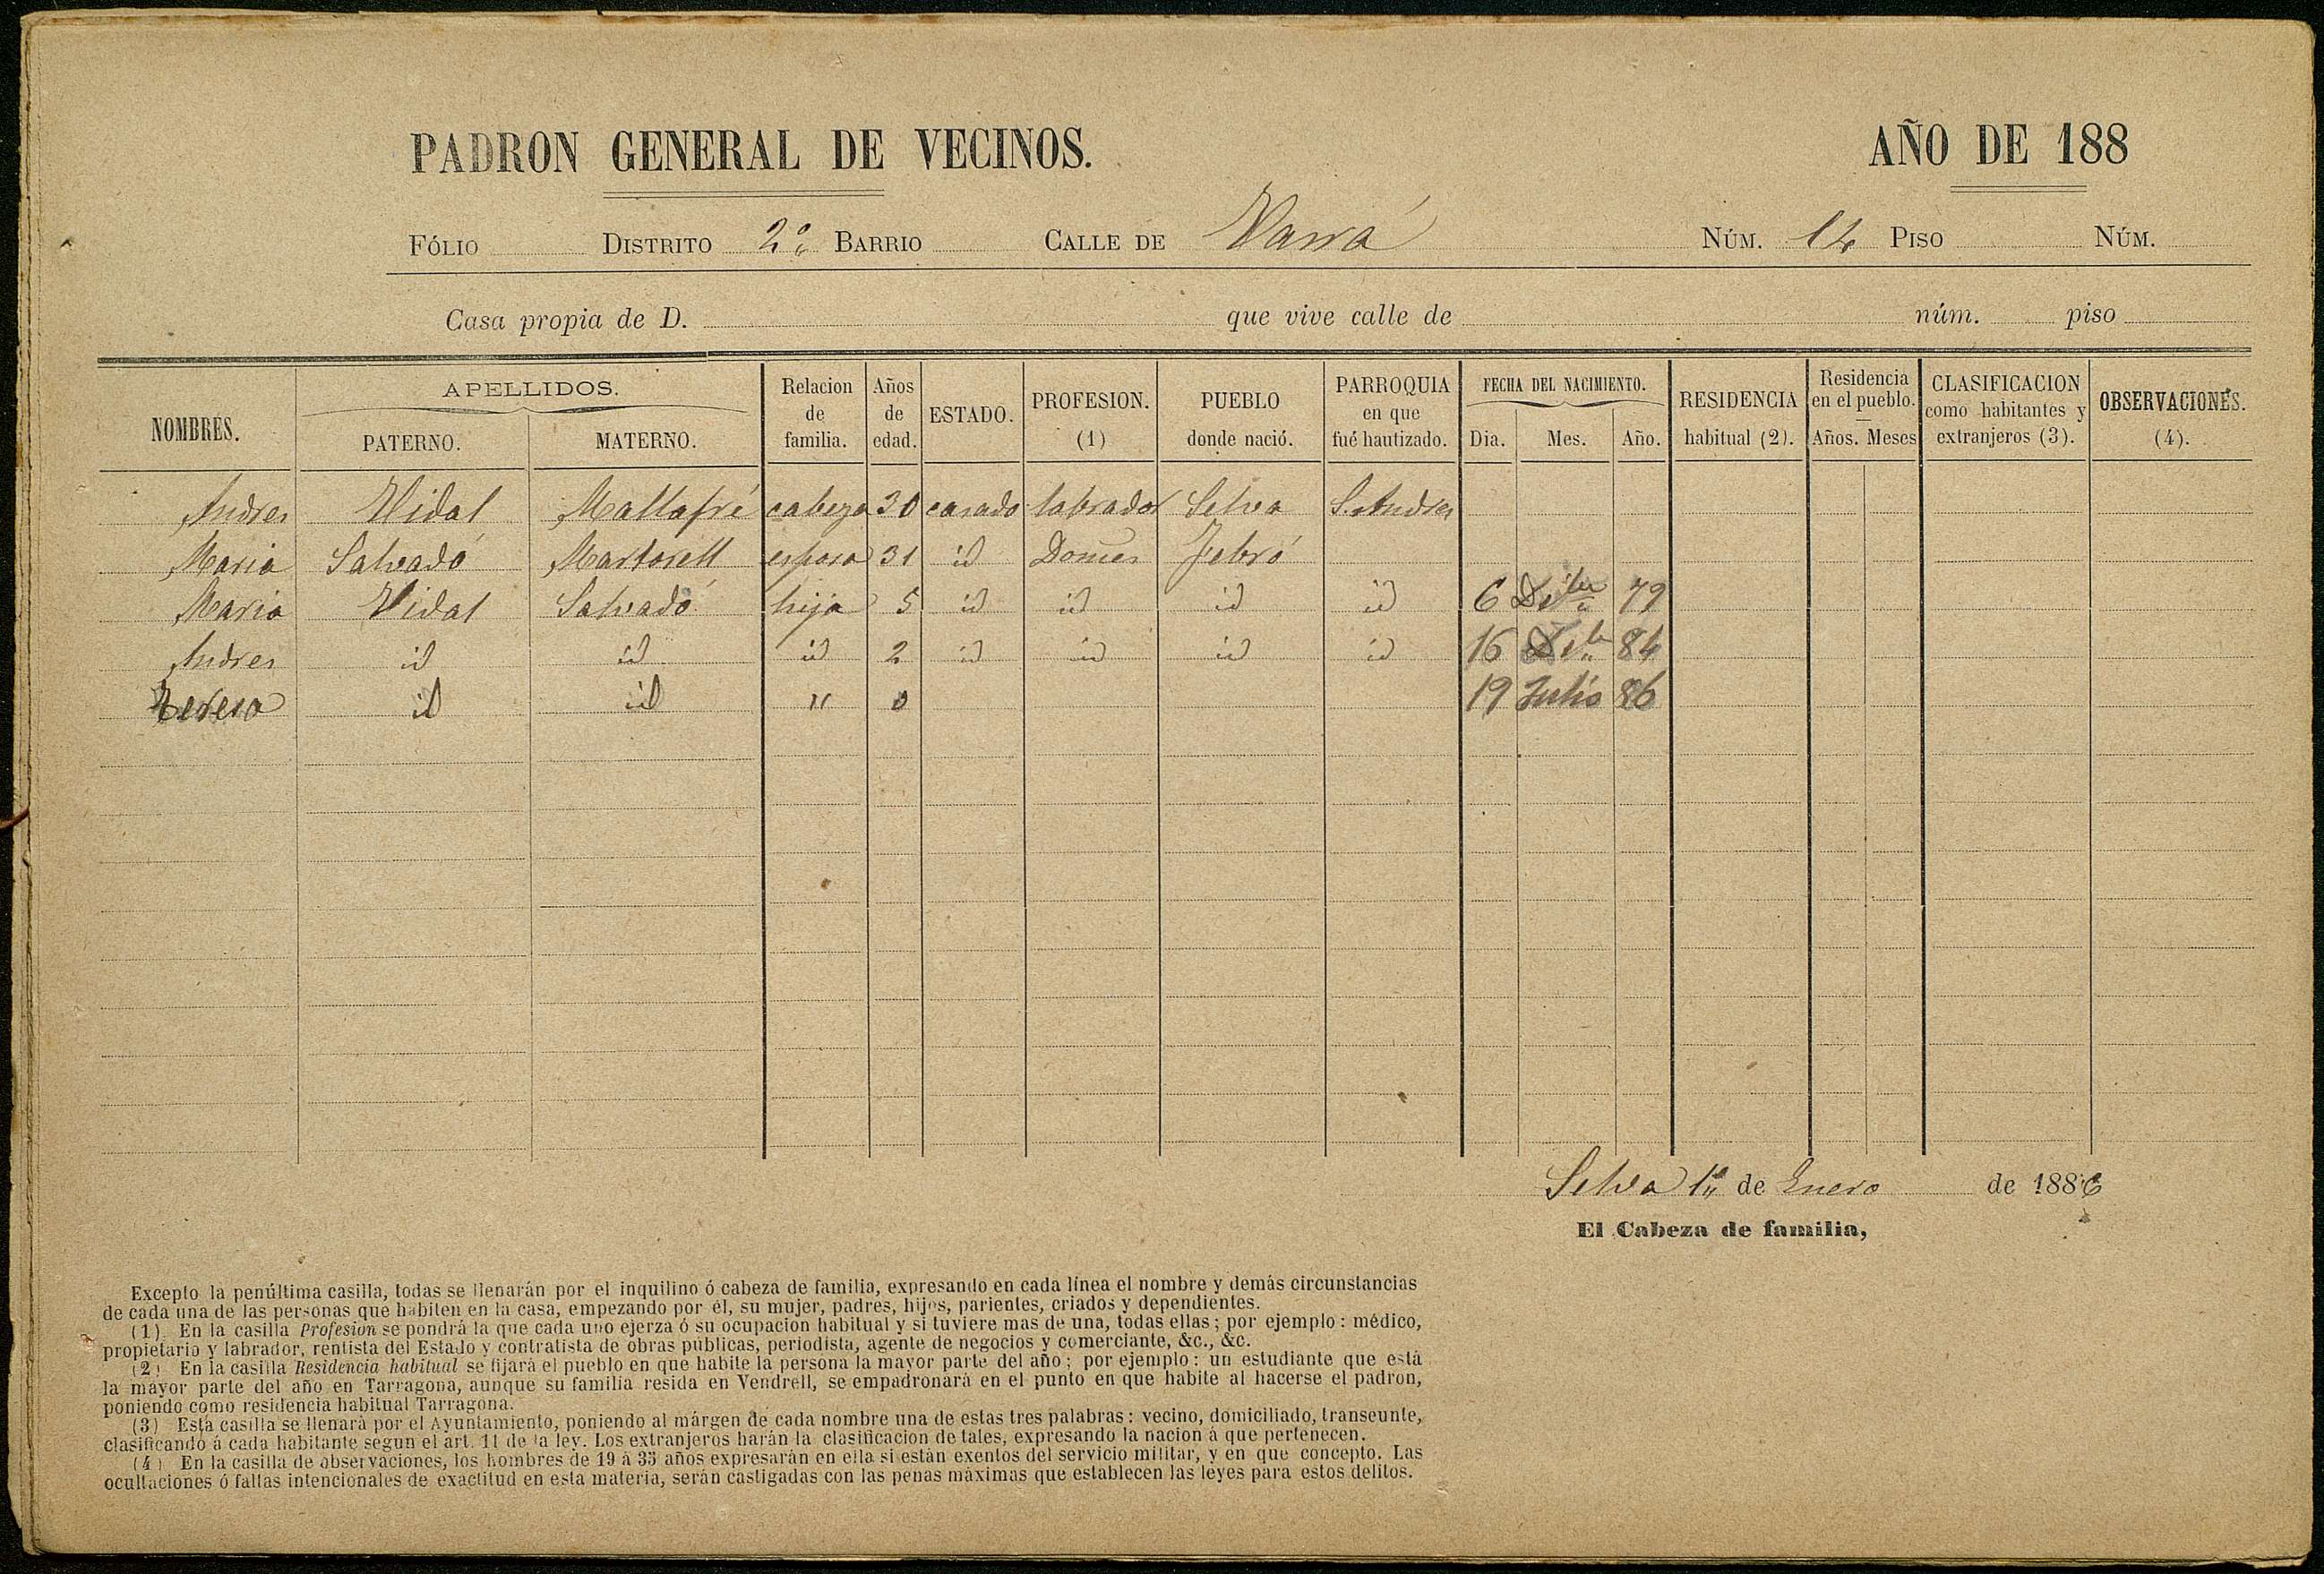 PADRON GENERAL DE VECINOS. AÑO DE 188
FÓLIO DISTRITO 2º BARRIO CALLE DE NÚM. 14 PISO NÚM.
Casa propia de D. que vive calle de núm. piso
NOMBRES. APELLIDOS. PATERNO. MATERNO. Relacion de familia. Años de edad. ESTADO. PROFESION. (1) PUEBLO donde nació. PARROQUIA en que fué bautizado. FECHA DEL NACIMIENTO. Dia. Mes. Año. RESIDENCIA habitual (2). Residencia en el pueblo. Años. Meses CLASIFICACION como habitantes y extranjeros (3). OBSERVACIONES. (4).
Andres Vidal Mallafré cabeza 30 casado labrador Selva S. Andres
Maria Salvadó Martorell esposa 31 id Domes Febró
Maria Vidal Salvadó hija 5 id id id id 6 79
Andres id id id 2 id id id id 16 84
Teresa id id " 0 19 Julio 86
Selva 1º de Enero de 1886
El Cabeza de familia,
Excepto la penúltima casilla, todas se llenarán por el inquilino ó cabeza de familia, expresando en cada línea el nombre y demás circunstancias
de cada una de las personas que habiten en la casa, empezando por él, su mujer, padres, hijos, parientes, criados y dependientes.
(1) En la casilla Profesion se pondrá la que cada uno ejerza ó su ocupacion habitual y si tuviere mas de una, todas ellas; por ejemplo: médico,
propietario y labrador, rentista del Estado y contratista de obras públicas, periodista, agente de negocios y comerciante, &c., &c.
(2) En la casilla Residencia habitual se fijará el pueblo en que habite la persona la mayor parte del año; por ejemplo: un estudiante que está
la mayor parte del año en Tarragona, aunque su familia resida en Vendrell, se empadronará en el punto en que habite al hacerse el padron,
poniendo como residencia habitual Tarragona.
(3) Esta casilla se llenará por el Ayuntamiento, poniendo al márgen de cada nombre una de estas tres palabras: vecino, domiciliado, transeunte,
clasificando á cada habitante segun el art. 11 de la ley. Los extranjeros harán la clasificacion de tales, expresando la nacion á que pertenecen.
(4) En la casilla de observaciones, los hombres de 19 á 35 años expresarán en ella si están exentos del servicio militar, y en que concepto. Las
ocultaciones ó faltas intencionales de exactitud en esta materia, serán castigadas con las penas máximas que establecen las leyes para estos delitos.